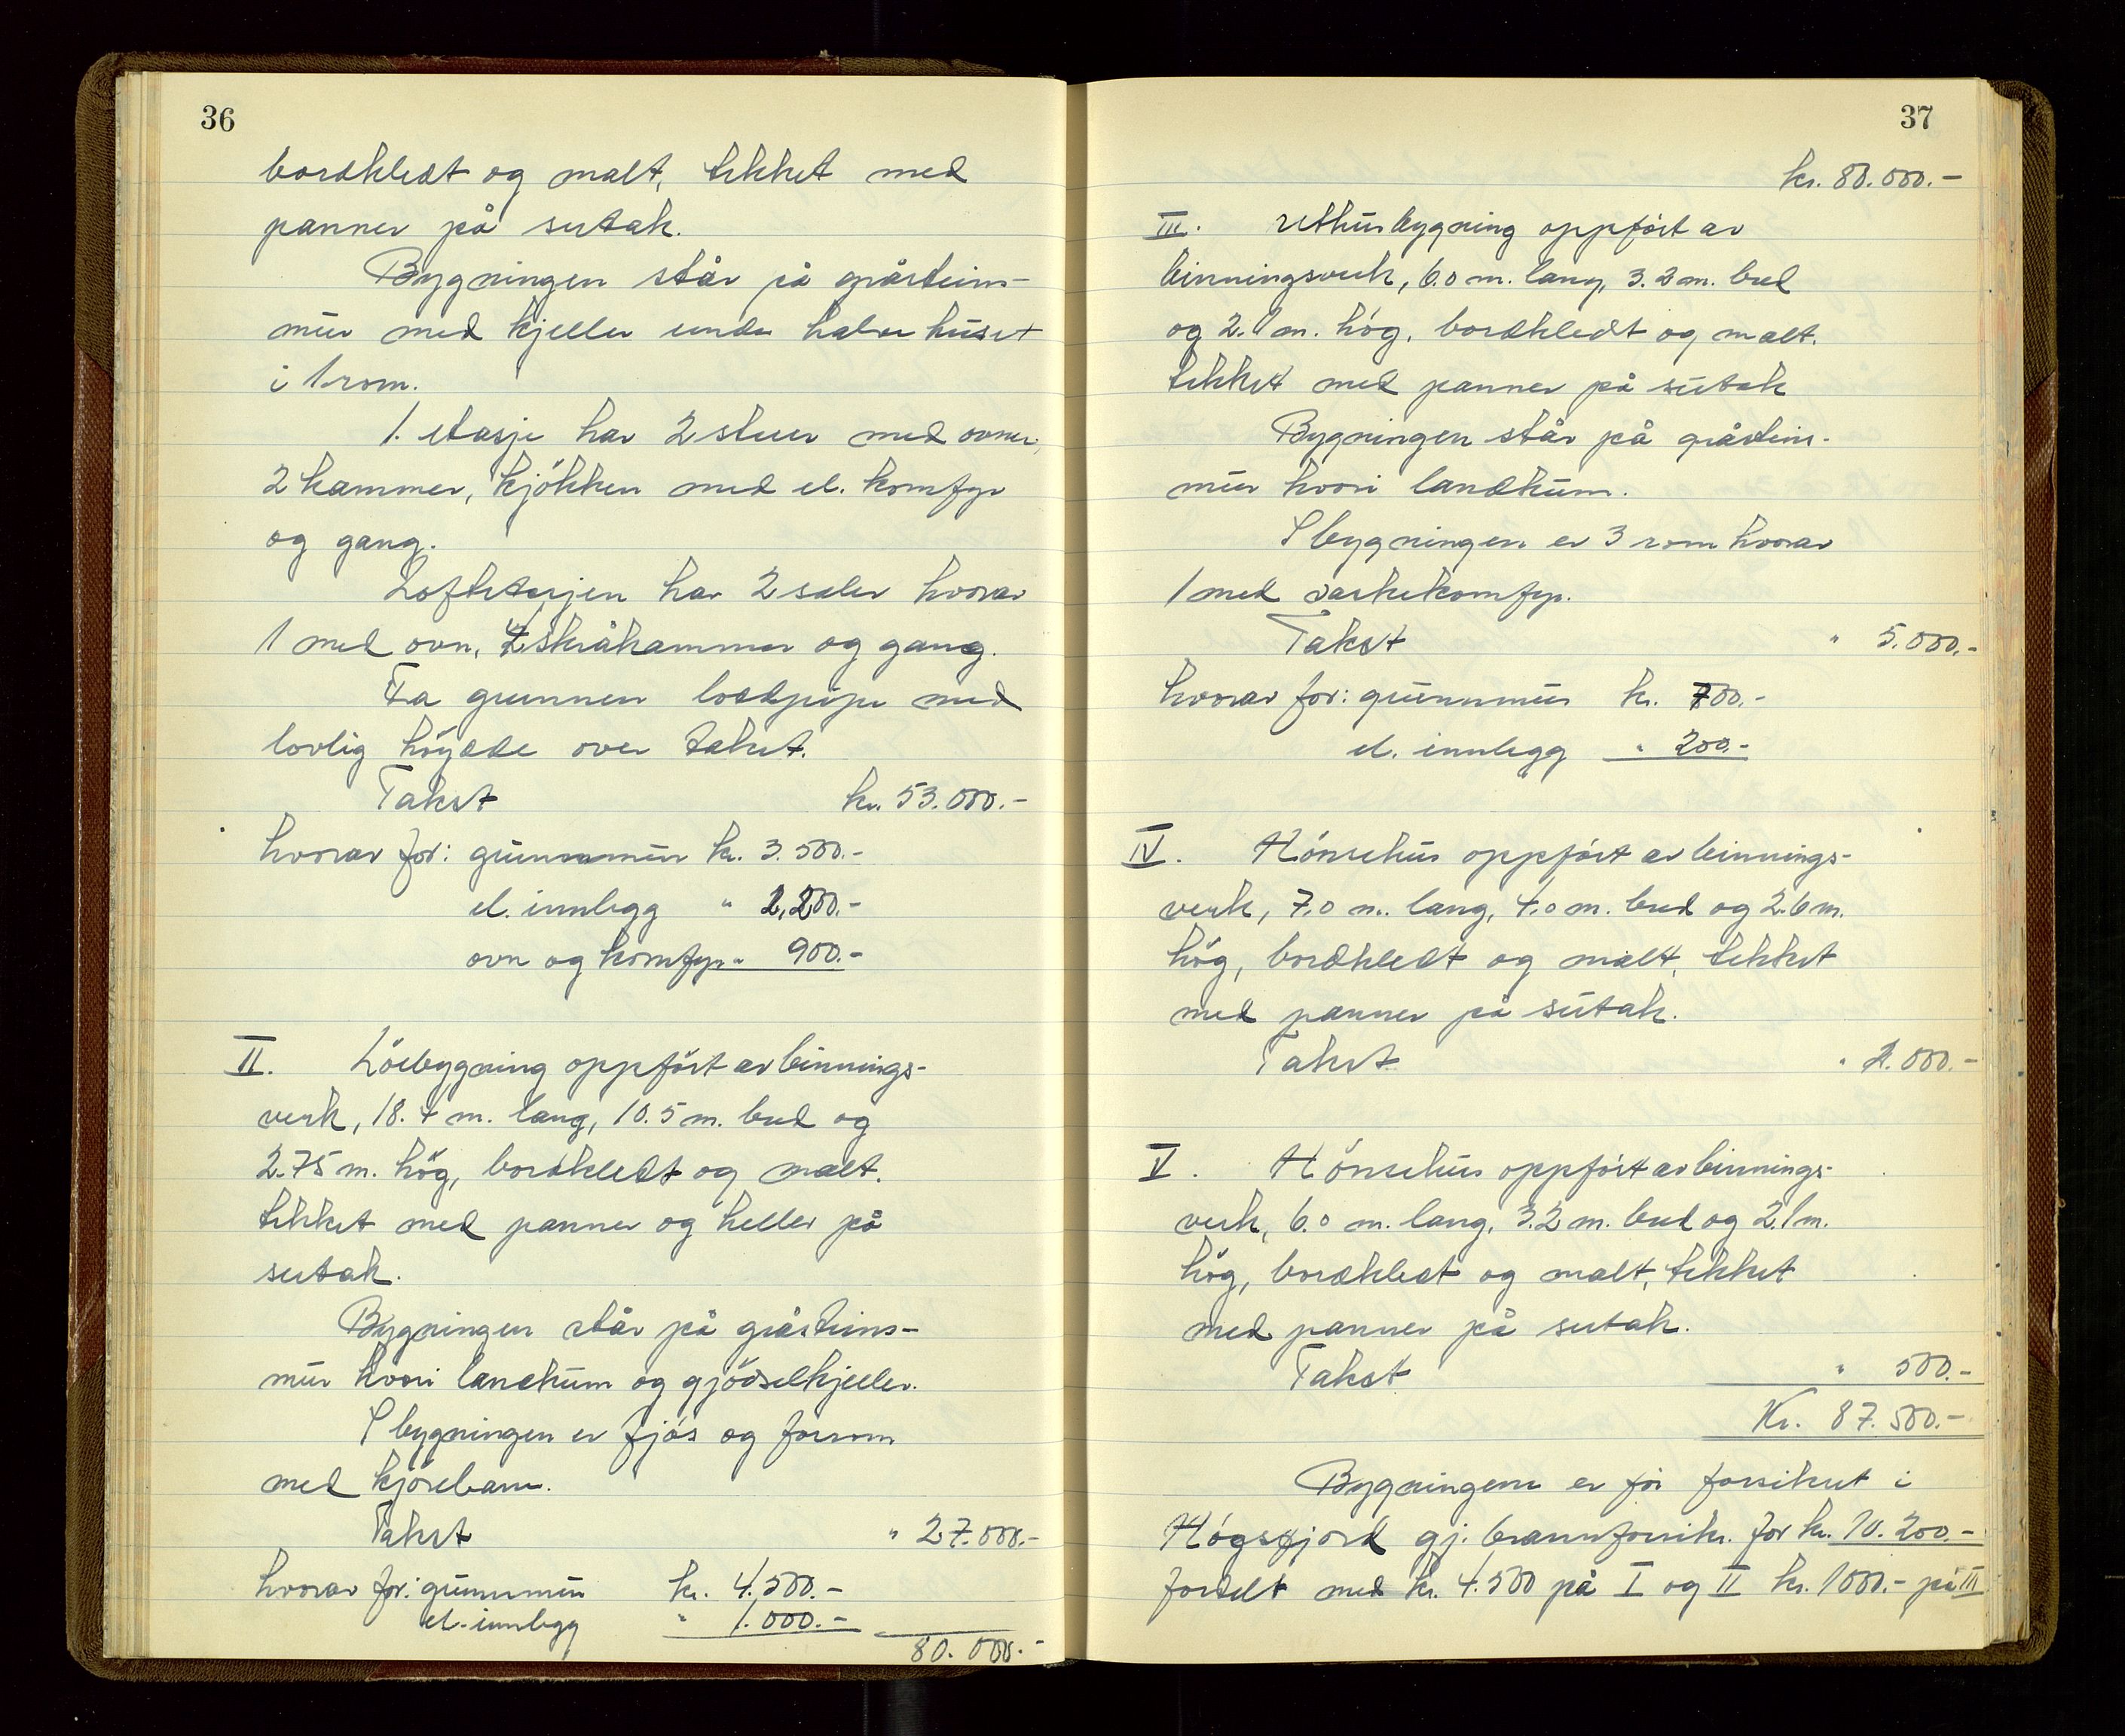 36
bordkledt og malt, tekket med
panner på sutak.
Bygningen står på gråsteins-
mur med kjeller under halve huset
i 1 rom.
1. etasje har 2 stuer med ovner,
2 kammer, kjökken med el. komfyr
og gang.
Loftetasjen har 2 saler hvorav
1 med ovn, 4 skråkammer og gang.
Fra grunnen lodpipe med
lovlig höyde over taket.
Takst kr. 53.000.-
hvorav for: grunnmur kr. 3.500.-
el. innlegg " 2,200.-
ovn og komfyr " 900.-
II. Löebygning oppfört av binnings-
verk, 18.4 m. lang, 10.5 m. bred og
2.75 m. hög, bordkledt og malt.
tekket med panner og heller på
sutak.
Bygningen står på gråsteins-
mur hvori landkum og gjödselkjeller.
I bygningen er fjös og forrom
med kjörebane.
Takst " 27.000.-
hvorav for: grunnmur kr. 4.500.-
el. innlegg " 1.000.-
80.000.-
37
kr. 80.000.-
III. Uthusbygning oppfört av
binningsverk, 6.0 m. lang, 3.2 m. bred
og 2.1 m. hög, bordkledt og malt.
tekket med panner på sutak
Bygningen står på gråsteins-
mur hvori landkum.
I bygningen er 3 rom hvorav
1 med vaskekomfyr.
Takst " 5.000.-
hvorav for: grunnmur kr. 700.-
el. innlegg " 200.-
IV. Hönsehus oppfört av binnings-
verk, 7.0 m. lang, 4.0 m. bred og 2.6 m.
hög, bordkledt og malt, tekket
med panner på sutak.
Takst " 2.000.-
V. Hönsehus oppfört av binnings-
verk, 6.0 m. lang, 3.2 m. bred og 2.1 m.
hög, bordkledt og malt, tekket
med panner på sutak.
Takst " 500.-
Kr. 87.500.-
Bygningene er för forsikret i
Högsfjord gj. brannforsikr. for kr. 10.200.-
fordelt med kr. 4.500 på I og II kr. 1000.- på III